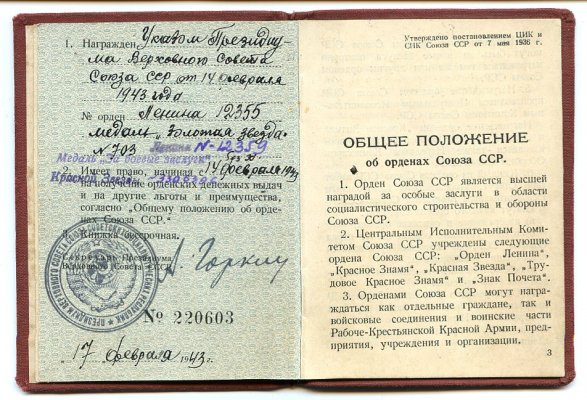 1. Награжден Указом Президиу-
ма Верховного Совета
Союза ССР от 14 февраля
1943 года
№ орден Ленина 12355
медаль „Золотая Звезда"
№ 703 Ленина N-12359
Медаль „За боевые заслуги"
2. Имеет право, начиная с 14 февраля 1943
Красной Звезды
на получение орденских денежных выдач
и на другие льготы и преимущества,
согласно „Общему положению об орде-
нах Союза ССР".
3. Книжка бессрочная.
Секретарь Президиума
Верховного Совета СССР
А. Горкин
№ 220603
„17" февраля 1943 г.
Утверждено постановлением ЦИК и
СНК Союза ССР от 7 мая 1936 г.
ОБЩЕЕ ПОЛОЖЕНИЕ
об орденах Союза ССР.
1. Орден Союза ССР является высшей
наградой за особые заслуги в области
социалистического строительства и обороны
Союза ССР.
2. Центральным Исполнительным Коми-
тетом Союза ССР учреждены следующие
ордена Союза ССР: „Орден Ленина",
„Красное Знамя", „Красная Звезда", „Тру-
довое Красное Знамя" и „Знак Почета".
3. Орденами Союза ССР могут награж-
даться как отдельные граждане, так и
войсковые соединения и воинские части
Рабоче-Крестьянской Красной Армии, пред-
приятия, учреждения и организации.
3